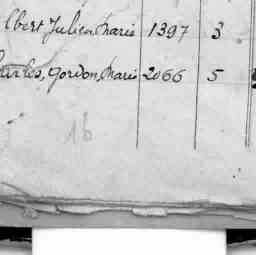 lbert Julien Marie 1397 3
harles, Gordon, Marie 2066 5
16